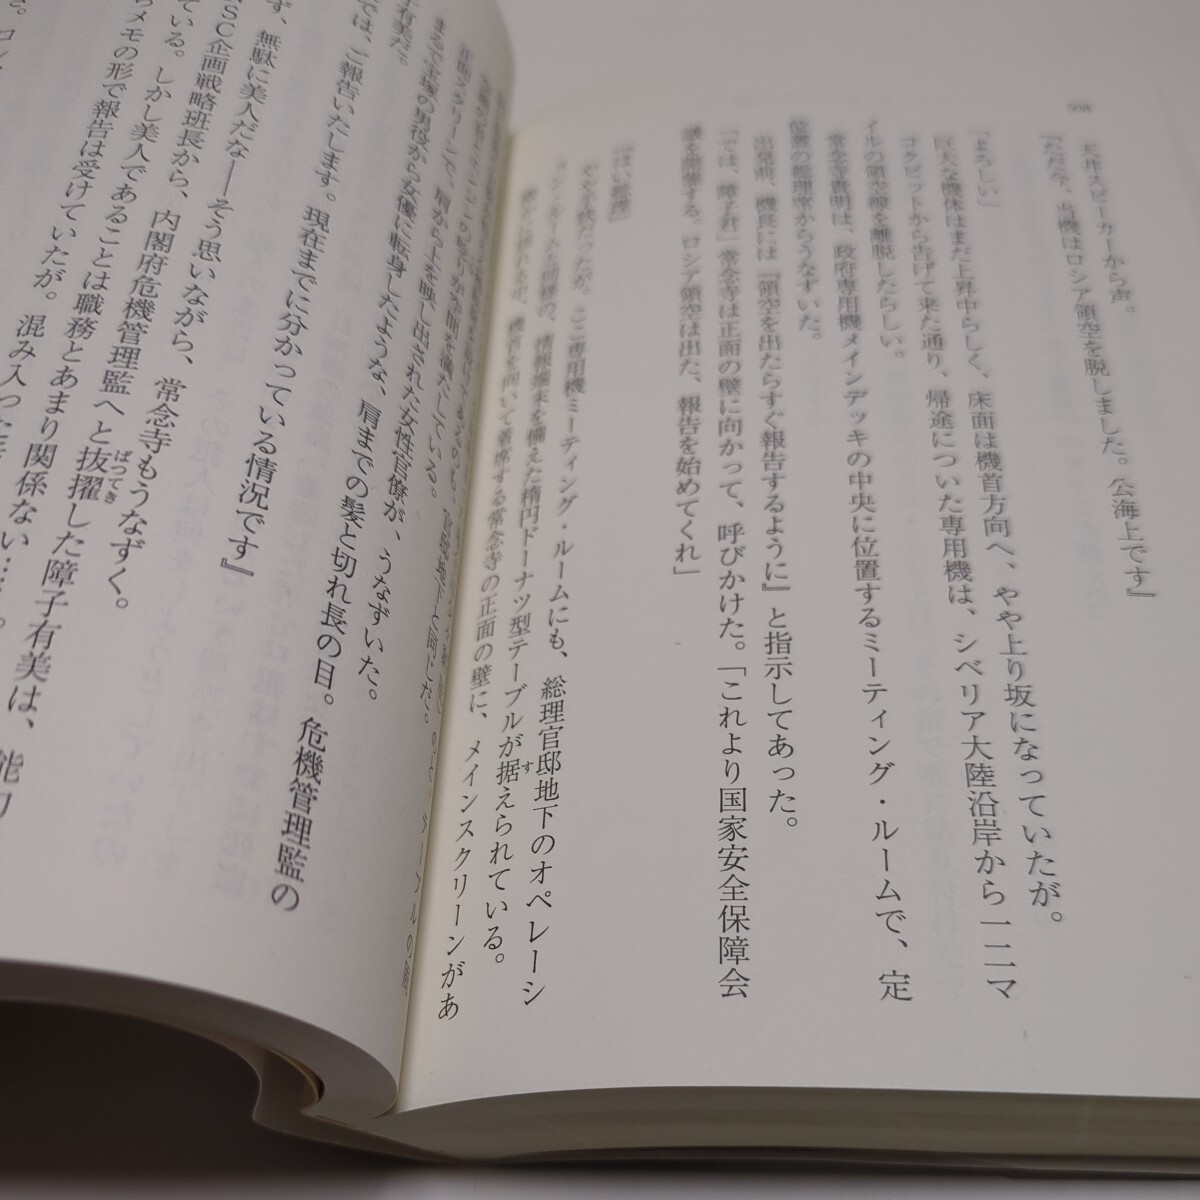 天井スピーカーから声。
『ただ今、当機はロシア領空を脱しました。公海上です』
「よろしい」
巨大な機体はまだ上昇中らしく、床面は機首方向へ、やや上り坂になっていたが。
コクピットから告げて来た通り、帰途についた専用機は、シベリア大陸沿岸から一二マ
イルの領空線を離脱したらしい。
常念寺貴明は、政府専用機メインデッキの中央に位置するミーティング・ルームで、定
位置の総理席からうなずいた。
出発前、機長には「領空を出たらすぐ報告するように』と指示してあった。
「では、障子君」常念寺は正面の壁に向かって、呼びかけた。「これより国家安全保障会
議を開催する。ロシア領空は出た、報告を始めてくれ」
『はい総理』
やや手狭だったが、ここ専用機ミーティング・ルームにも、総理官邸地下のオペレーシ
ョン・ルームと同様の、情報端末を備えた楕円ドーナツ型テーブルが据えられている。
機首を向いて着席する常念寺の正面の壁に、メインスクリーンがあ
官邸地下と同じだ。
正面スクリーンで、肩から上を映し出された女性官僚が、うなずいた。
まるで宝塚の男役から女優に転身したような、肩までの髪と切れ長の目。危機管理監の
子有美だ。
では、ご報告いたします。現在までに分かっている情況です』
ず、無駄に美人だな――そう思いながら、常念寺もうなずく。
SC企画戦略班長から、内閣府危機管理監へと抜擢した障子有美は、
ている。しかし美人であることは職務とあまり関係ない……。
メモの形で報告は受けていたが。混み入った